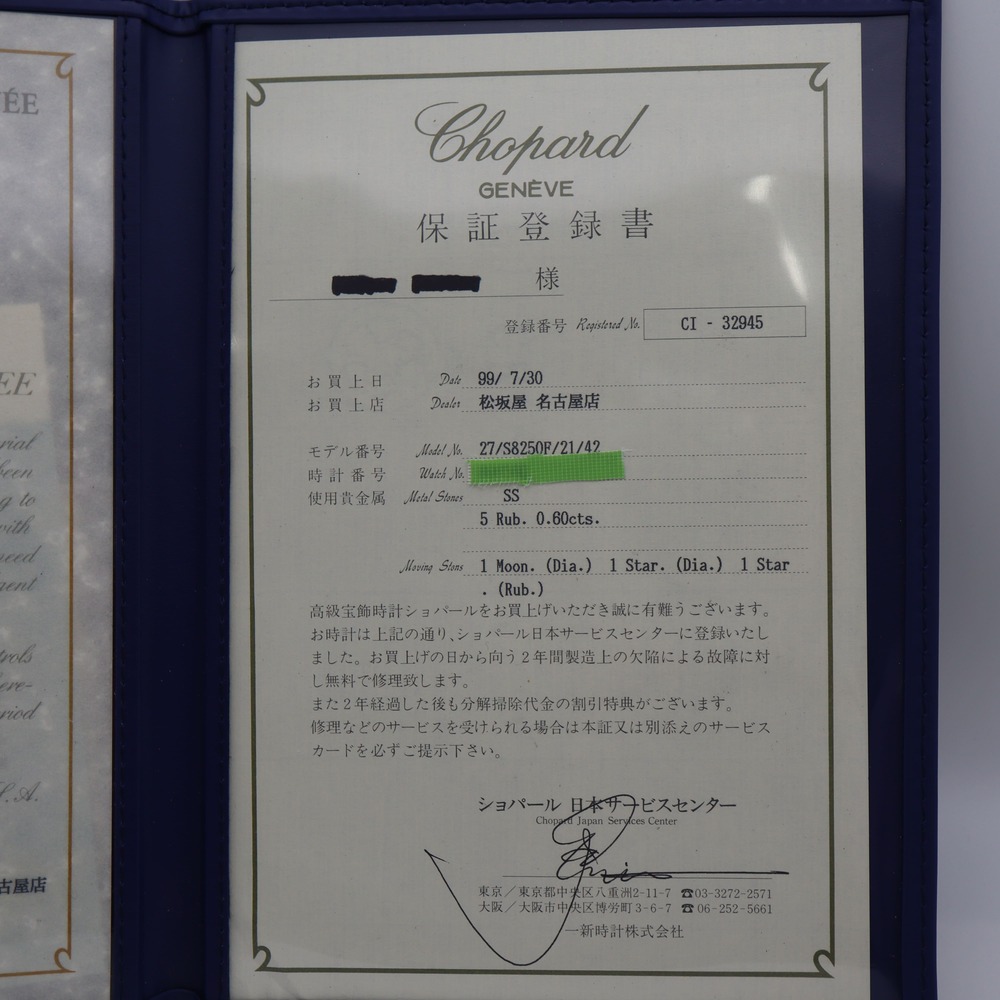 ÉE
EE
rial
been
g to
with
need
ment
trols
here-
riod
S.A.
古屋店
Chopard
GENÈVE
保証登録書
様
登録番号 Registered No. CI - 32945
お買上日 Date 99/ 7/30
お買上店 Dealer 松坂屋 名古屋店
モデル番号 Model No. 27/S8250F/21/42
時計番号 Watch No.
使用貴金属 Metal Stones SS
5 Rub. 0.60cts.
Moving Stons 1 Moon. (Dia.) 1 Star. (Dia.) 1 Star
. (Rub.)
高級宝飾時計ショパールをお買上げいただき誠に有難うございます。
お時計は上記の通り、ショパール日本サービスセンターに登録いたし
ました。お買上げの日から向う2年間製造上の欠陥による故障に対
し無料で修理致します。
また2年経過した後も分解掃除代金の割引特典がございます。
修理などのサービスを受けられる場合は本証又は別添えのサービス
カードを必ずご提示下さい。
ショパール 日本サービスセンター
Chopard Japan Services Center
東京／東京都中央区八重洲2-11-7 ☎03-3272-2571
大阪／大阪市中央区博労町3-6-7 ☎06-252-5661
一新時計株式会社